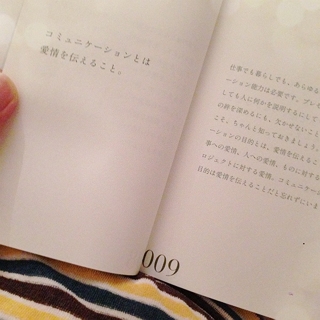 コミュニケーションとは
愛情を伝えること。
仕事でも暮らしても、あらゆる
ーション能力は必要です。プレ
しても人に何かを説明するにして
の絆を深めるにも、欠かせないこと
こそ、ちゃんと知っておきましょう。
ーションの目的とは、愛情を伝えるこ
事への愛情、人への愛情、ものに対する
ロジェクトに対する愛情。コミュニケー
目的は愛情を伝えることだと忘れずにいま
009